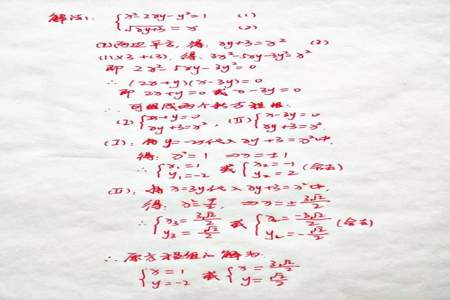 解法1: { x²-2xy-y²=1 (1)
√xy+3 = x (2)
(2)两边平方, 得: xy+3=x² (3)
(1)×3+(3), 得: 3x²-5xy-3y²=x²
即 2x²-5xy-3y²=0
∴ (2x+y)(x-3y)=0
即 2x+y=0 或 x-3y=0
∴ 可组成两个新方程组:
(I) { 2x+y=0 xy+3=x² , (II) { x-3y=0 xy+3=x²
(I): 将 y=-2x代入 xy+3=x²中.
得: x²=1 x=±1
∴ { x₁=1 y₁=-2 或 { x₂=-1 y₂=2 (舍去)
(II): 将 x=3y代入 xy+3=x²中.
得: x²=9/2 x=±3√2/2
∴ { x₃=3√2/2 y₃=√2/2 或 { x₄=-3√2/2 y₄=-√2/2 (舍去)
∴ 原方程组的解为:
{ x=1 y=-2 或 { x=3√2/2 y=√2/2